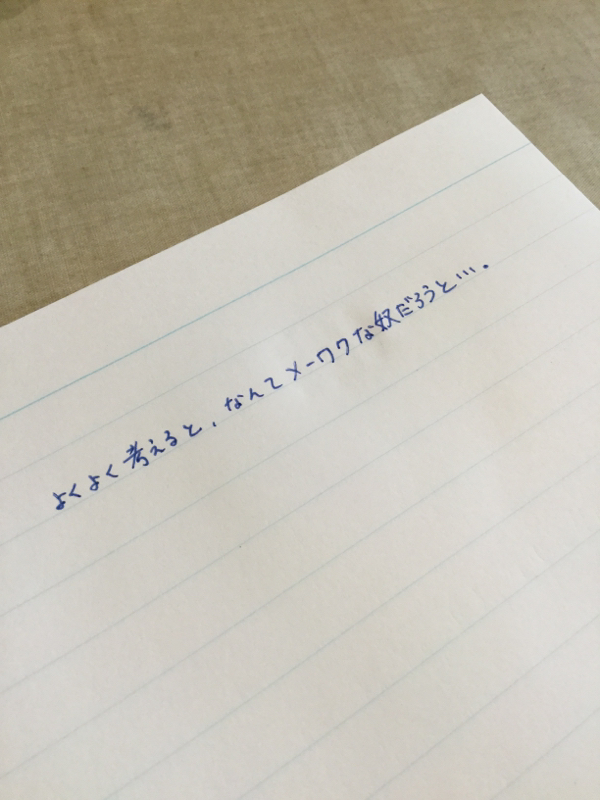 よくよく考えると、なんてメーワクな奴だろうと…。